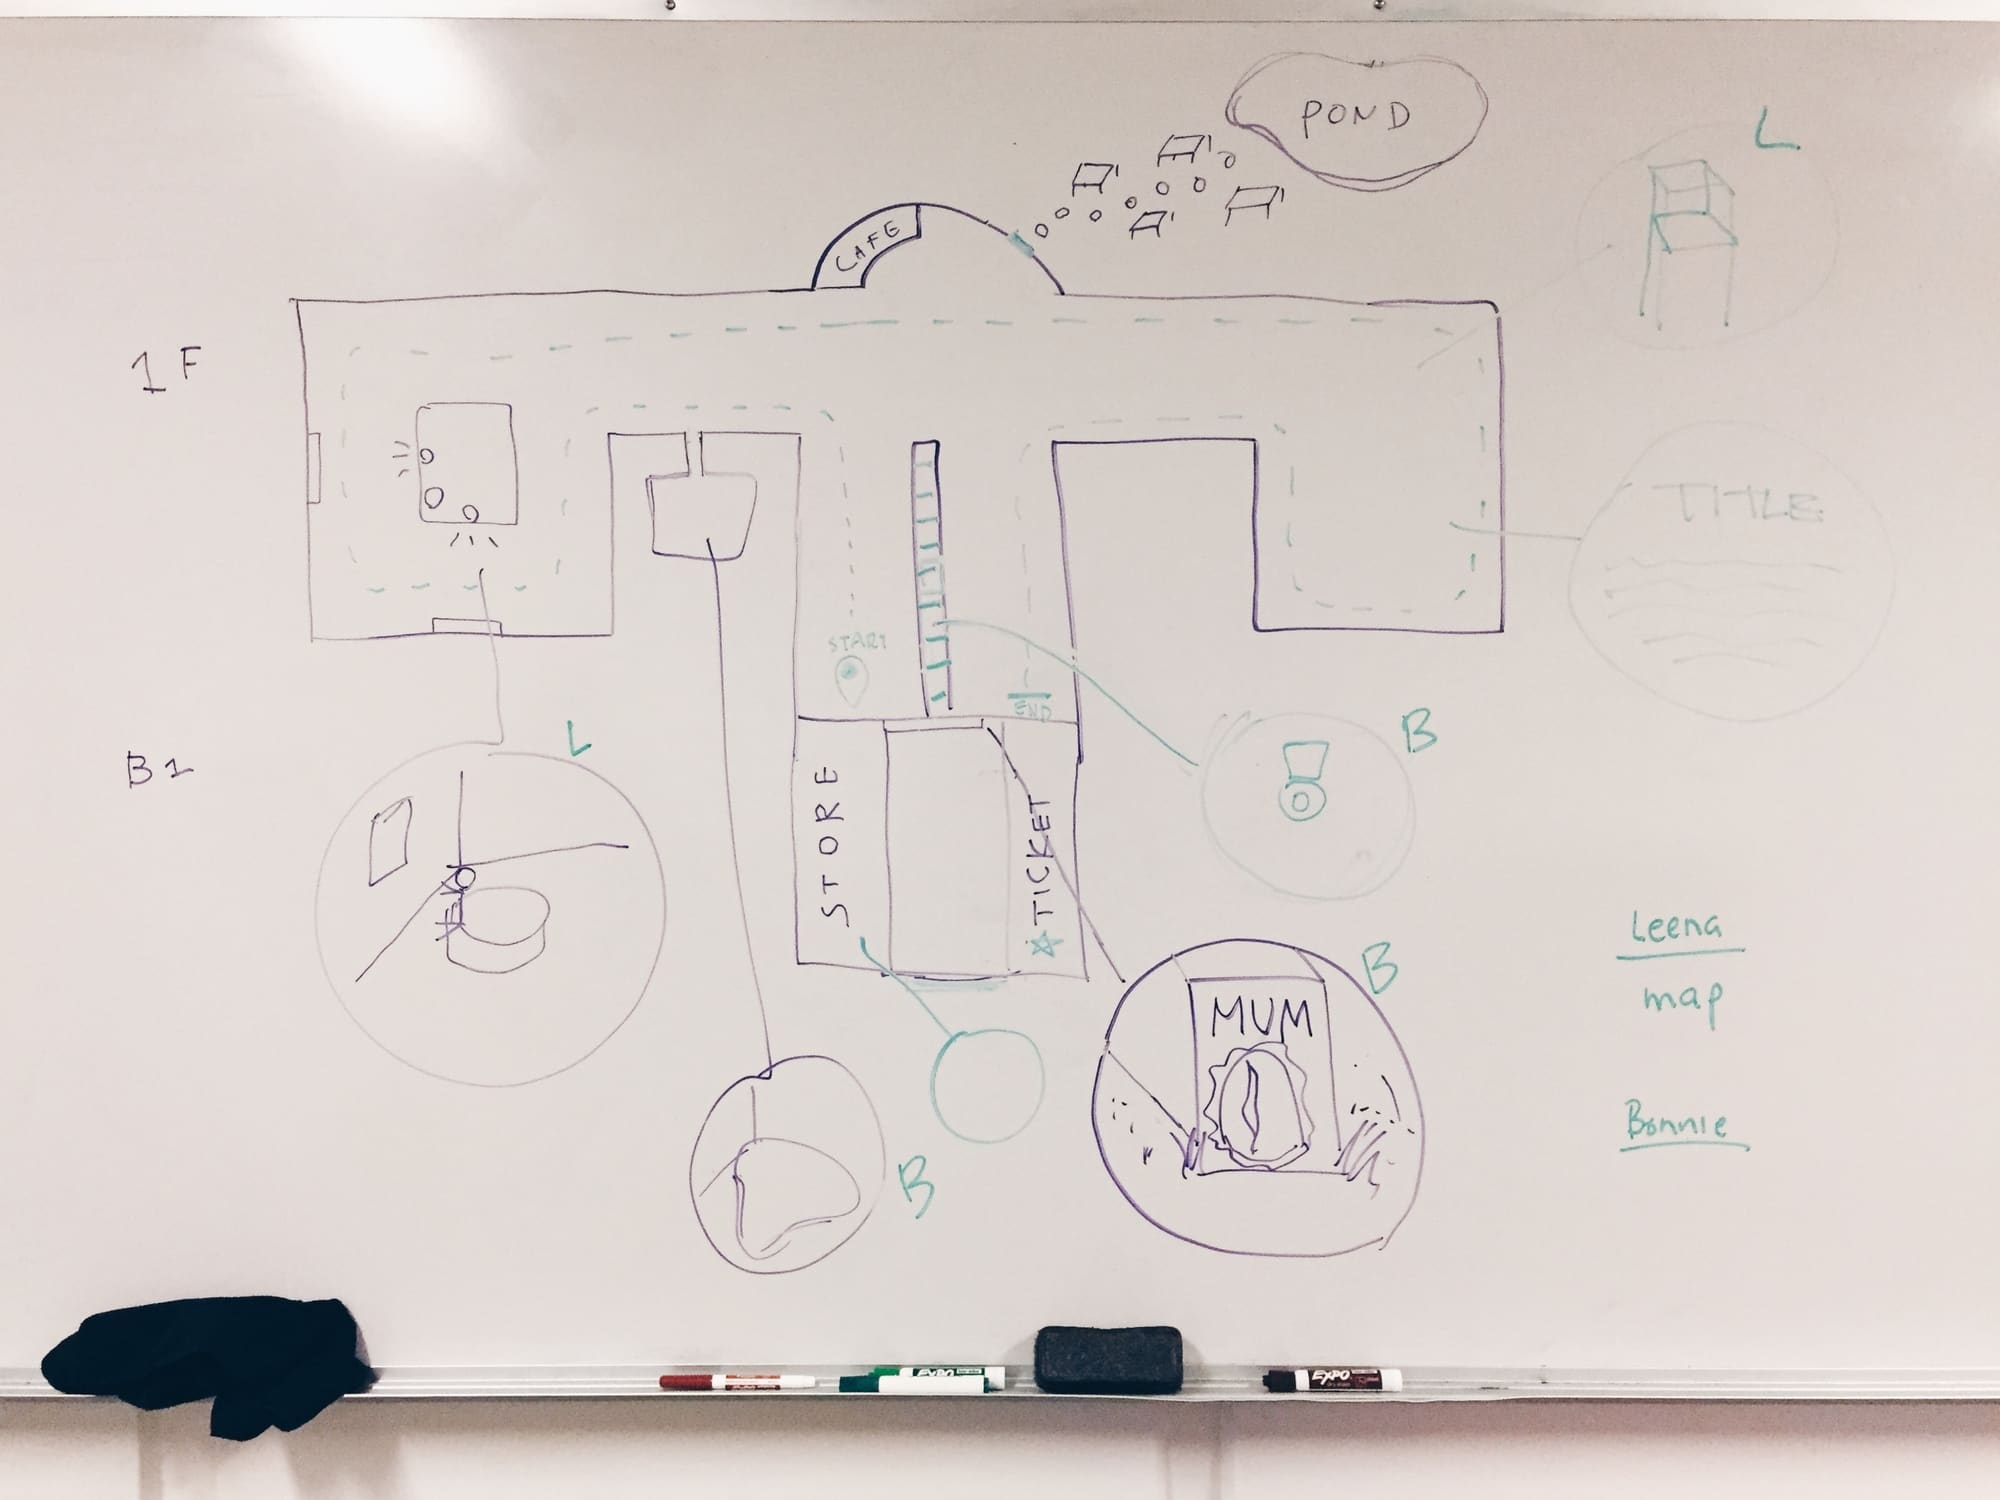 POND
L
CAFE
1F
TITLE
START
END
B
B1
L
STORE
TICKET
Leena
map
B
MUM
Bonnie
B
EXPO
EXPO